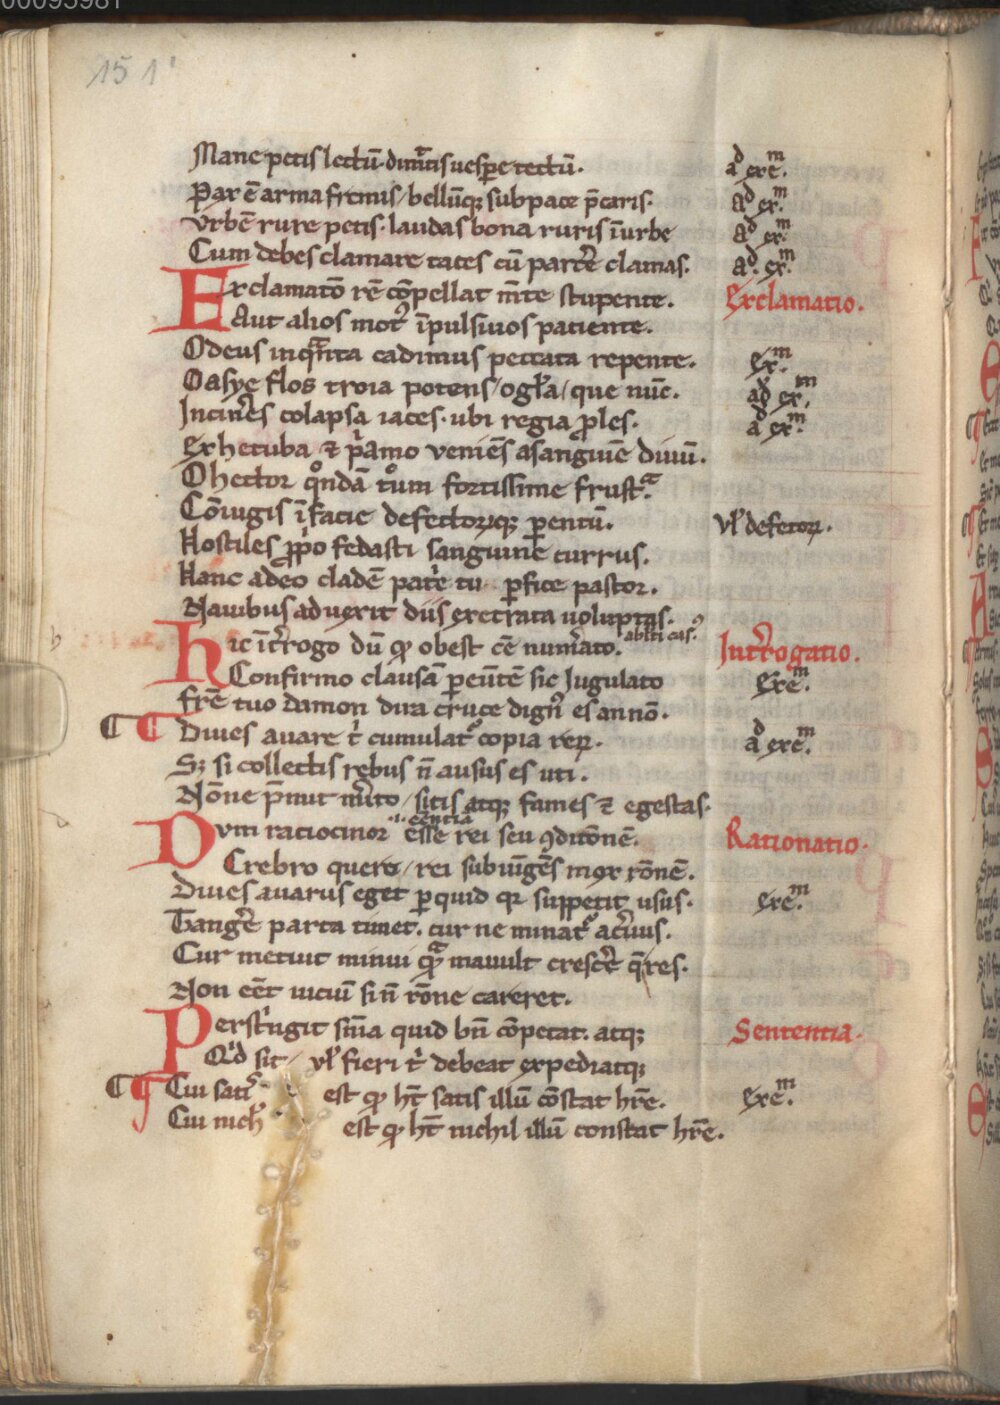 00095981
151'
Mane petis lectū. dimittis uesꝑe tectū. ad exem.
Par ē arma fremis / bellūqꝫ sub pace p̄caris. ad exm.
Vrbē rure petis. laudas bona ruris ī urbe ad exm.
Cum debes clamare taces cū parcē clamas. ad. exm.
Exclamatō rē cōpellat mēte stupente. Exclamatio.
Aut alios mot᷒ īpulsiuos patiente.
O deus in qᵃnta cadimus peccata repente. exm.
O asye flos troia potens / o gl̄a / que nūc. ad exm.
In cinēs colapsa iaces. ubi regia ꝓles. ad exm.
Ex hecuba ⁊ pⁱamo veniēs a sanguīe diuū.
O hector qͦndā tͦum fortissime frustᵃ.
Cōiugis ī facie defectorūqꝫ parentū. vl̄ defectoꝝ.
Hostiles ꝓpͦo fedasti sanguine currus.
Hanc adeo cladē patⁱe tu ꝑfice pastor.
Nauibus aduexit diis execrata uoluptas.
ablti cas᷒
Hic īt̄rogo dū ꝙ obest cē num̄ato. Int̄rogatio.
Confirmo clausā ꝑeūtē sic Jugulato Exem.
Fr̄e tuo damon dira cruce dign᷒ es annō.
Diues auare tⁱ cumulat᷒ copia reꝝ. ad exem.
Sꝫ si collectis rebus n̄ ausus es uti.
Nōne p̄mit m̄ito / sitis atqꝫ fames ⁊ egestas.
.i. eēntiā
Dum raciocinor esse rei seu ꝯditōnē. Rationatio.
Crebro quero / rei subiūgēs mox rōnē.
Diues auarus eget ꝑ quid qꝛ suppetit usus. exem.
Tangē parta timet. cur ne minat᷒ ac̄uus.
Cur metuit minui qᵃ mauult cresc̄e q̄res.
Non eēt uiciū si n̄ rōne careret.
Perstⁱngit sm̄a quid bn̄ cōpetat. atqꝫ Sententia.
Qⁱd sit / vl̄ fieri tⁱ debeat expediatqꝫ
Cui satⁱs est ꝙ ht̄ satis illū cōstat hr̄e. exem.
Cui nich̄ est ꝙ ht̄ nichil illū constat hr̄e.